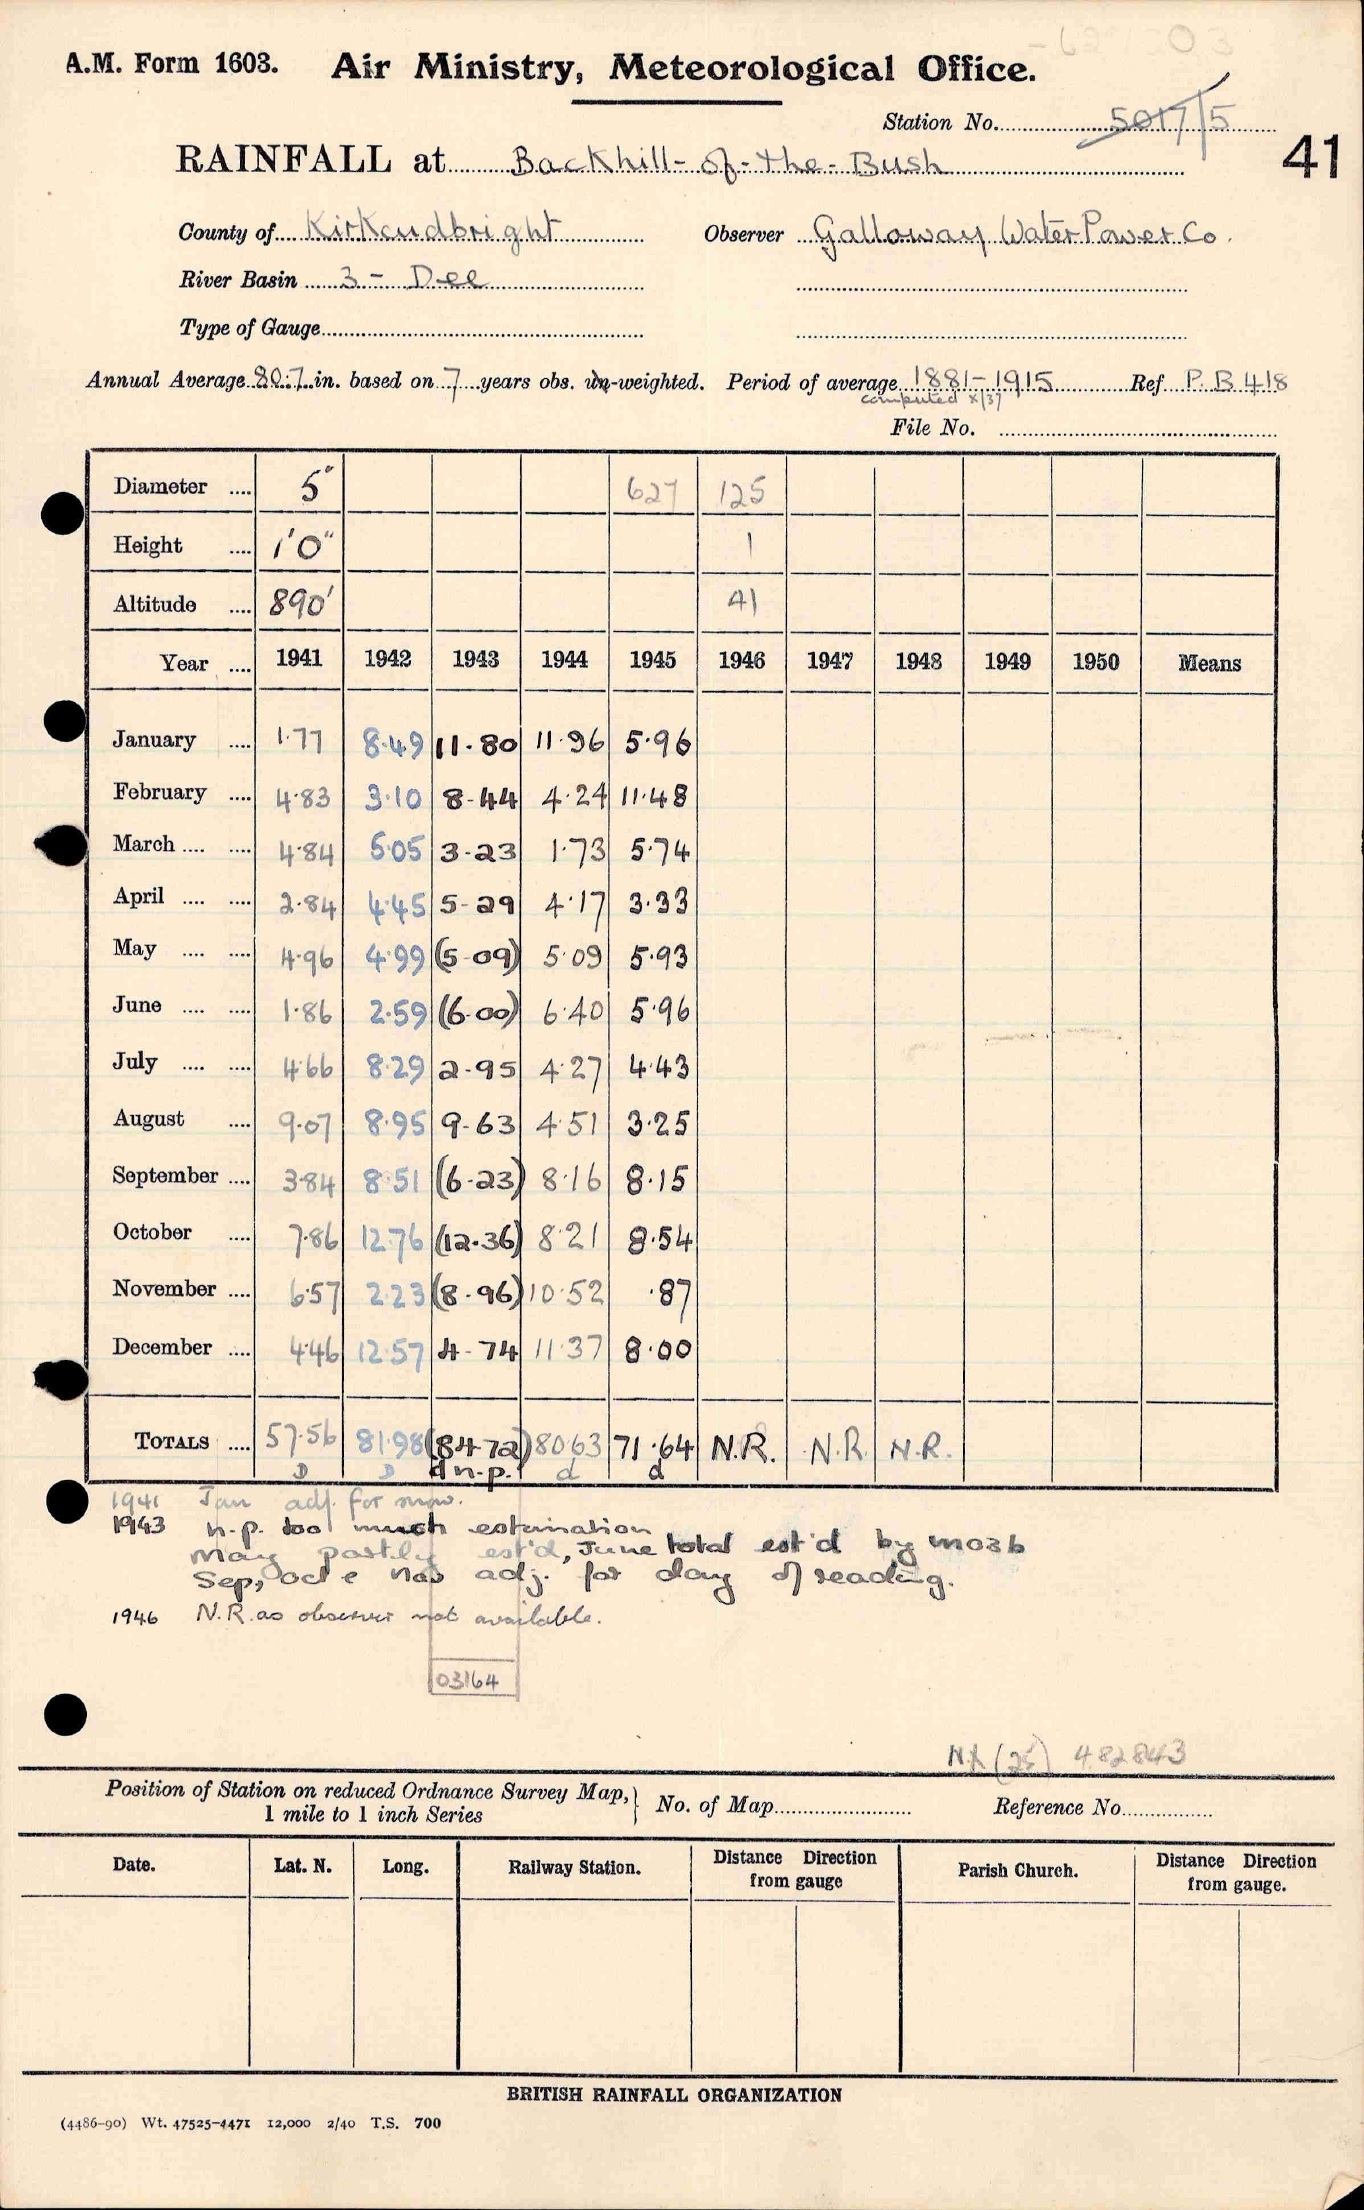 A.M. Form 1603. Air Ministry, Meteorological Office.
Station No. 5017/5
41
RAINFALL at Backhill-of-the-Bush
County of Kirkcudbright Observer Galloway Water Power Co.
River Basin 3 - Dee
Type of Gauge
Annual Average 80.7 in. based on 7 years obs. un-weighted. Period of average 1881-1915 Ref. P.B 418
computed x/37
File No.
Diameter .... 5" 627 125
Height .... 1'0" 1
Altitude .... 890' 41
Year .... 1941 1942 1943 1944 1945 1946 1947 1948 1949 1950 Means
January .... 1.77 8.49 11.80 11.96 5.96
February .... 4.83 3.10 8.44 4.24 11.48
March .... .... 4.84 5.05 3.23 1.73 5.74
April .... .... 2.84 4.45 5.29 4.17 3.33
May .... .... 4.96 4.99 (5.09) 5.09 5.93
June .... .... 1.86 2.59 (6.00) 6.40 5.96
July .... .... 4.66 8.29 2.95 4.27 4.43
August .... 9.07 8.95 9.63 4.51 3.25
September .... 3.84 8.51 (6.23) 8.16 8.15
October .... 7.86 12.76 (12.36) 8.21 8.54
November .... 6.57 2.23 (8.96) 10.52 .87
December .... 4.46 12.57 4.74 11.37 8.00
TOTALS .... 57.56 81.98 (84.72) 80.63 71.64 N.R. N.R. N.R.
D D d n.p. d d
1941 Jan adj. for snow.
1943 n.p. too much estimation
May partly est'd, June total est'd by M03b
Sep, Oct & Nov adj. for day of reading.
1946 N.R. as observer not available.
03164
(25) 482843
Position of Station on reduced Ordnance Survey Map, } No. of Map Reference No.
1 mile to 1 inch Series
Date. Lat. N. Long. Railway Station. Distance Direction from gauge Parish Church. Distance Direction from gauge.
BRITISH RAINFALL ORGANIZATION
(4486-90) Wt. 47525-4471 12,000 2/40 T.S. 700